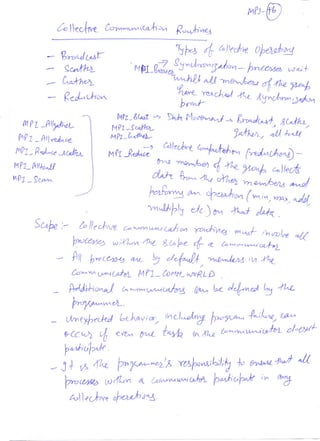 MPI-46
Collective Communication Routines
Types of Collective Operations
- Broadcast
- Scatter
- Gather
- Reduction
MPI_Barrier → Synchronization - processes wait
until all members of the group
have reached the synchronization
point
MPI_Bcast → Data Movement → Broadcast, scatter,
MPI_Scatter
gather, all to all
MPI_Gather
MPI_Allgather
MPI_Allreduce
MPI_Reduce_scatter
MPI_Alltoall
MPI_Scan
MPI_Reduce → Collective Computation (reductions) -
one member of the group collects
data from the other members and
performs an operation (min, max, add,
multiply etc) on that data.
Scope :- Collective communication routines must involve all
processes within the scope of a communicator
- All processes are by default, members in the
communicator MPI_COMM_WORLD.
- Additional communicators can be defined by the
programmer.
- Unexpected behavior, including program failure, can
occur if even one task in the communicator doesn't
participate.
- It is the programmer's responsibility to ensure that all
processes within a communicator participate in any
collective operations.